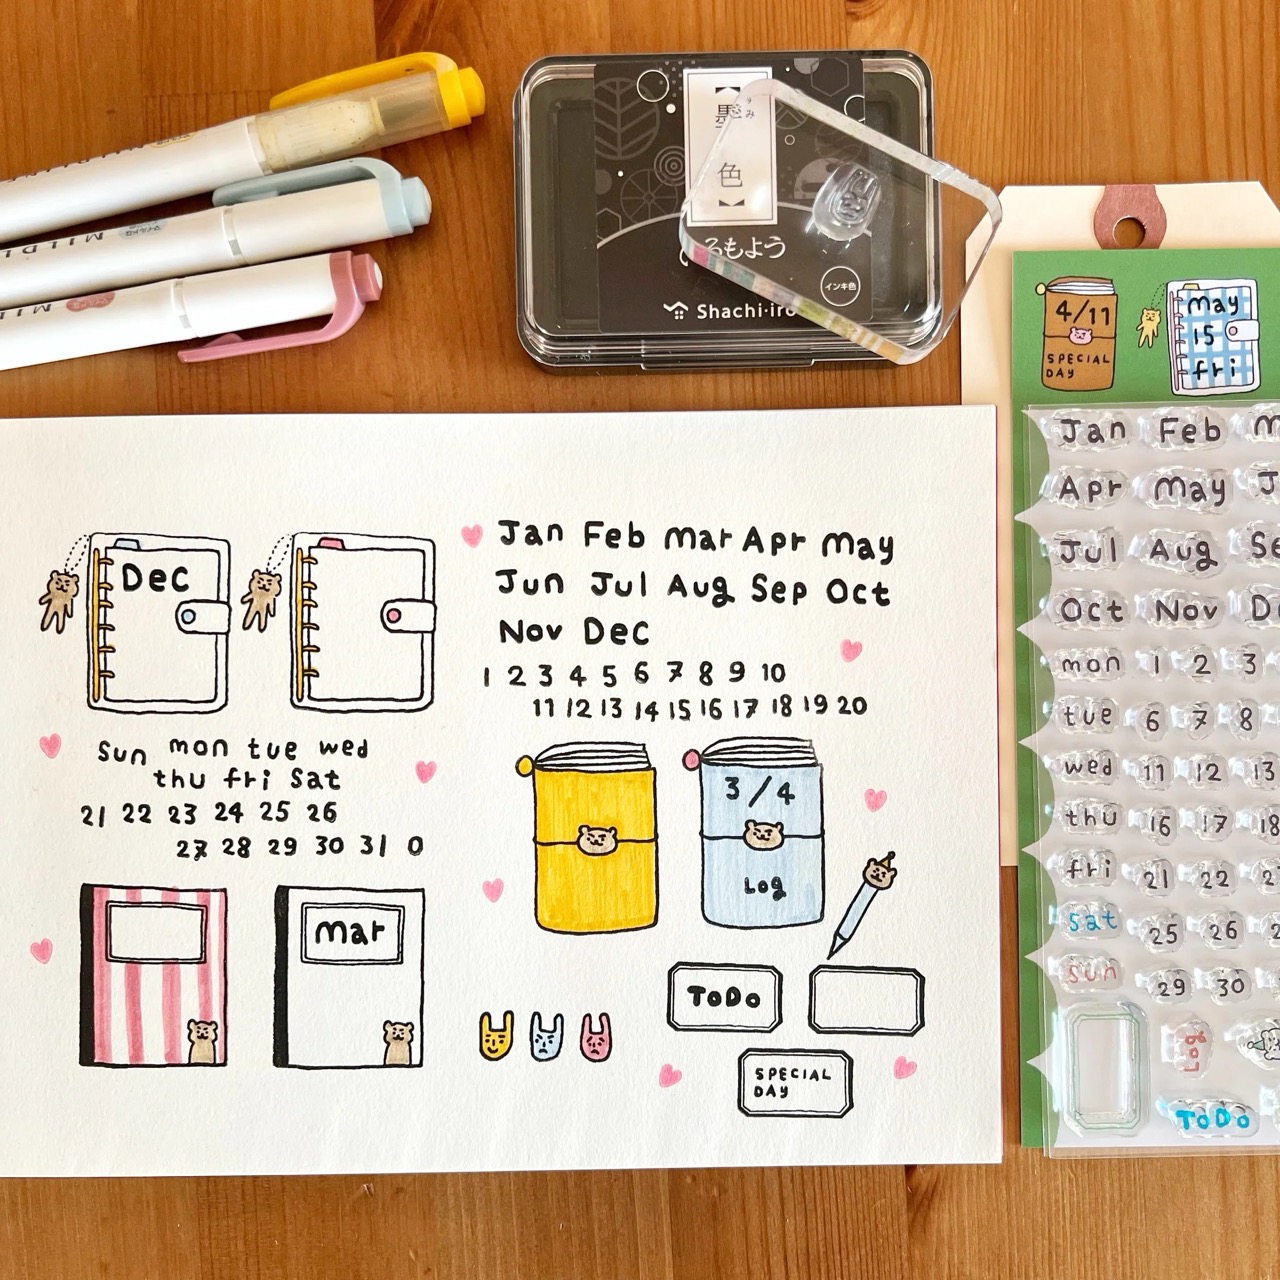 MILDLINER
墨色
すみ
インキ色
Shachi·iro
4/11
SPECIAL
DAY
May
15
fri
Jan Feb
Apr May
Jul Aug
Oct Nov
mon 1 2 3
tue 6 7 8
wed 11 12 13
thu 16 17 18
fri 21 22
Sat 25 26
Sun 29 30
Log
ToDo
Dec
Jan Feb Mar Apr May
Jun Jul Aug Sep Oct
Nov Dec
1 2 3 4 5 6 7 8 9 10
11 12 13 14 15 16 17 18 19 20
Sun mon tue wed
thu fri Sat
21 22 23 24 25 26
27 28 29 30 31 0
3/4
Log
mar
ToDo
SPECIAL
DAY